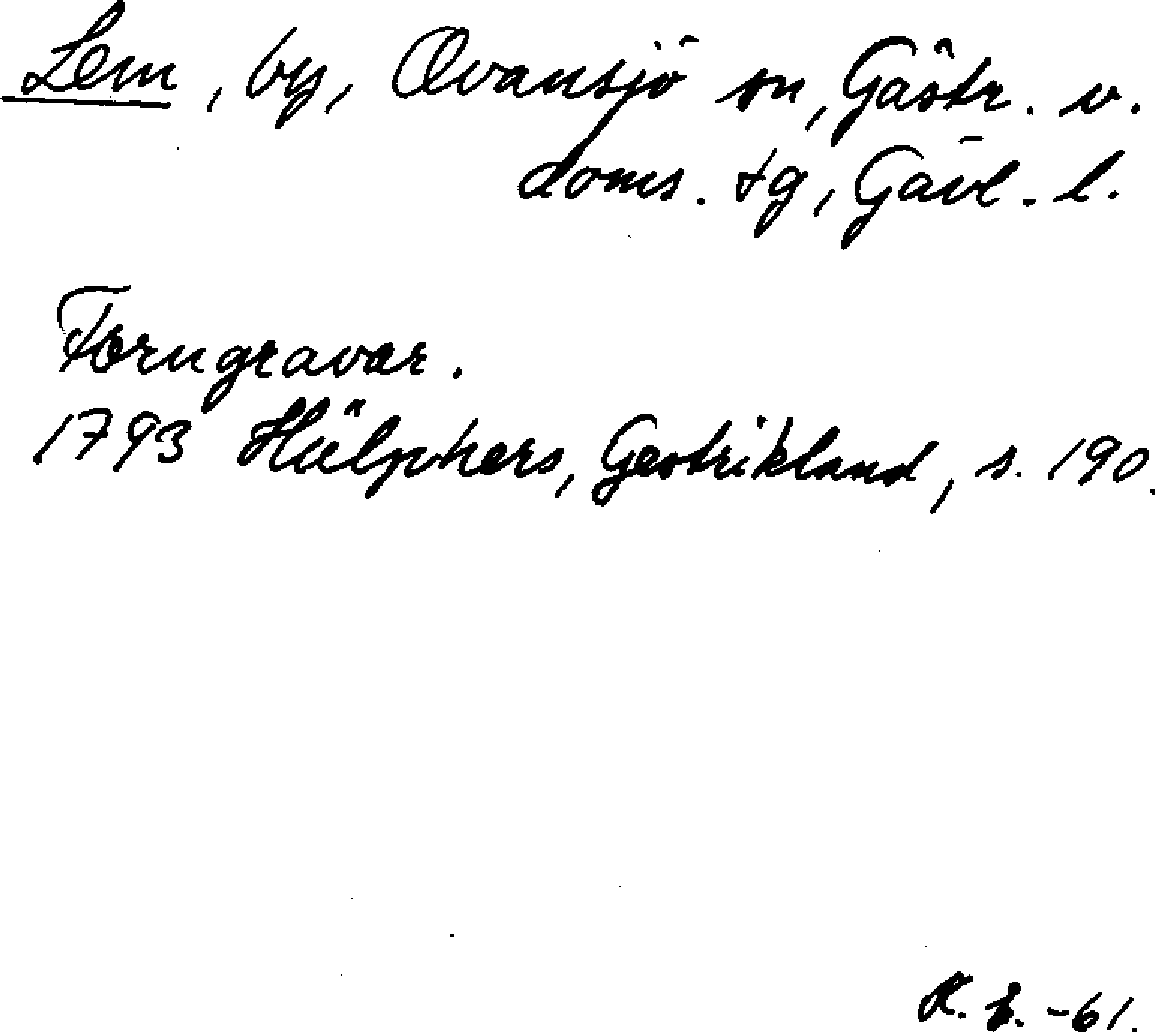 Lem, by, Ovansjö sn, Gästr. v.
doms. tg, Gävl. l.
Forngravar.
1793 Hülphers, Gestrikland, s. 190.
-61.